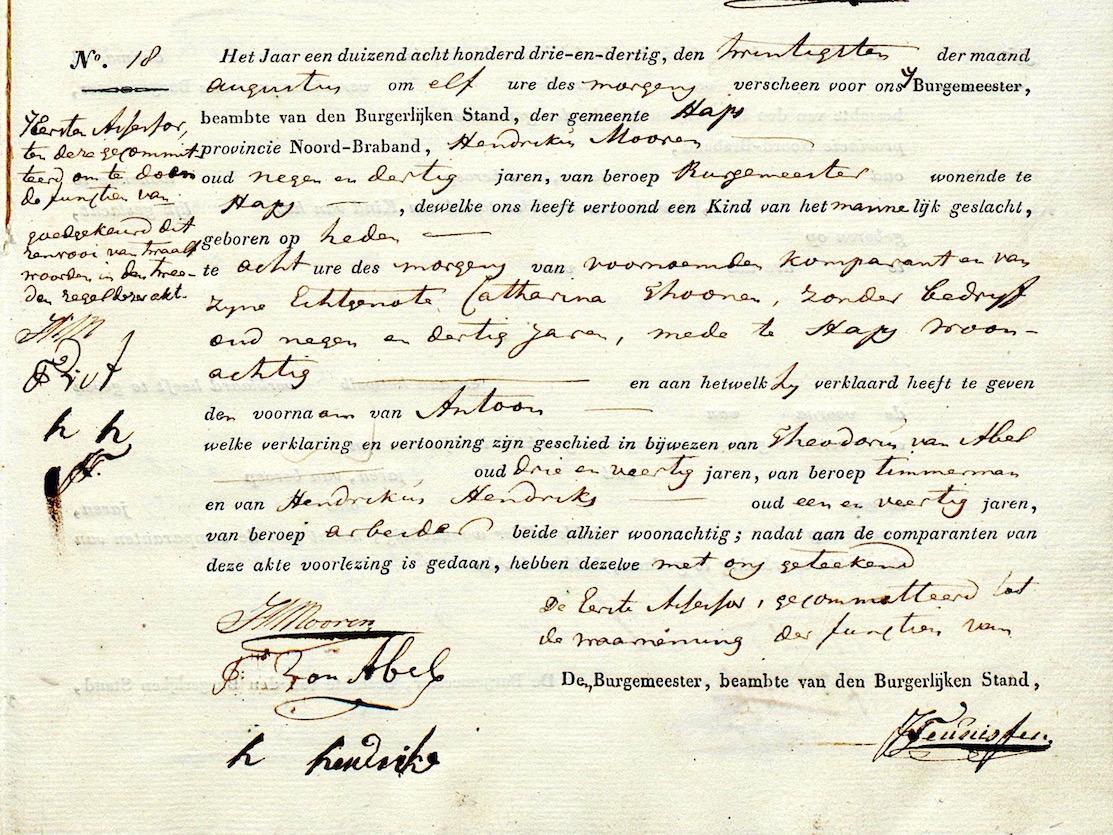 No. 18
Eersten Assessor,
ten deze gecommit-
teerd om te doen
de functien van
goedgekeurd dit
renvooi van twaalf
woorden in den twee-
den regel dezer akt.
HM
h h
Het Jaar een duizend acht honderd drie-en-dertig, den twintigsten der maand
augustus om elf ure des morgens verscheen voor ons Burgemeester,
beambte van den Burgerlijken Stand, der gemeente Haps
provincie Noord-Braband, Hendrikus Mooren
oud negen en dertig jaren, van beroep Burgemeester wonende te
Haps, dewelke ons heeft vertoond een Kind van het mannelijk geslacht,
geboren op heden
te acht ure des morgens van voornoemden komparant en van
zyne Echtgenote Catharina Thoonen, zonder bedryf
oud negen en dertig jaren, mede te Haps woon-
achtig en aan hetwelk hy verklaard heeft te geven
den voornaam van Antoon
welke verklaring en vertooning zijn geschied in bijwezen van Theodorus van Abel
oud drie en veertig jaren, van beroep timmerman
en van Hendrikus Hendriks oud een en veertig jaren,
van beroep arbeider beide alhier woonachtig; nadat aan de comparanten van
deze akte voorlezing is gedaan, hebben dezelve met ons geteekend
De Eerste Assessor, gecommitteerd tot
de waarneming der functien van
De Burgemeester, beambte van den Burgerlijken Stand,
HMooren
van Abel
h hendriks
Teunissen